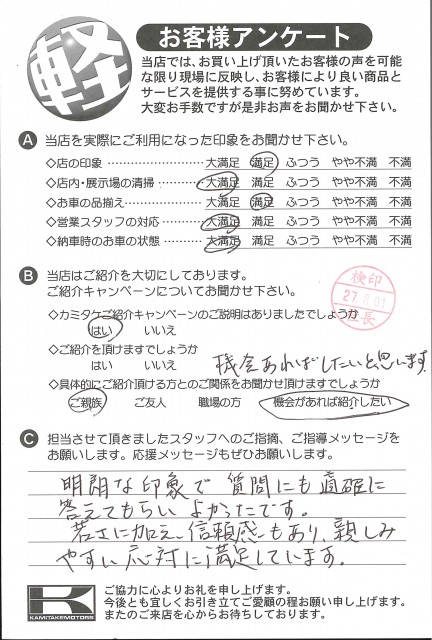 軽
お客様アンケート
当店では、お買い上げ頂いたお客様の声を可能
な限り現場に反映し、お客様により良い商品と
サービスを提供する事に努めています。
大変お手数ですが是非お声をお聞かせ下さい。
A 当店を実際にご利用になった印象をお聞かせ下さい。
◇店の印象 ……………………… 大満足 満足 ふつう やや不満 不満
◇店内・展示場の清掃 ………… 大満足 満足 ふつう やや不満 不満
◇お車の品揃え ………………… 大満足 満足 ふつう やや不満 不満
◇営業スタッフの対応 ………… 大満足 満足 ふつう やや不満 不満
◇納車時のお車の状態 ………… 大満足 満足 ふつう やや不満 不満
B 当店はご紹介を大切にしてあります。
ご紹介キャンペーンについてお聞かせ下さい。
検印
27.8.01
社長
◇カミタケご紹介キャンペーンのご説明はありましたでしょうか
はい いいえ
◇ご紹介を頂けますでしょうか
はい いいえ 機会あればしたいと思います。
◇具体的にご紹介頂ける方とのご関係をお聞かせ頂けますでしょうか
ご親族 ご友人 職場の方 機会があれば紹介したい
C 担当させて頂きましたスタッフへのご指摘、ご指導メッセージを
お願いします。応援メッセージもぜひお願いします。
明朗な印象で質問にも直確に
答えてもらいよかったです。
若さに加え、信頼感もあり、親しみ
やすい応対に満足しています。
K
KAMITAKEMOTORS
ご協力に心よりお礼を申し上げます。
今後とも宜しくお引き立てご愛顧の程お願い申し上げます。
またのご来店を心からお待ちしております。